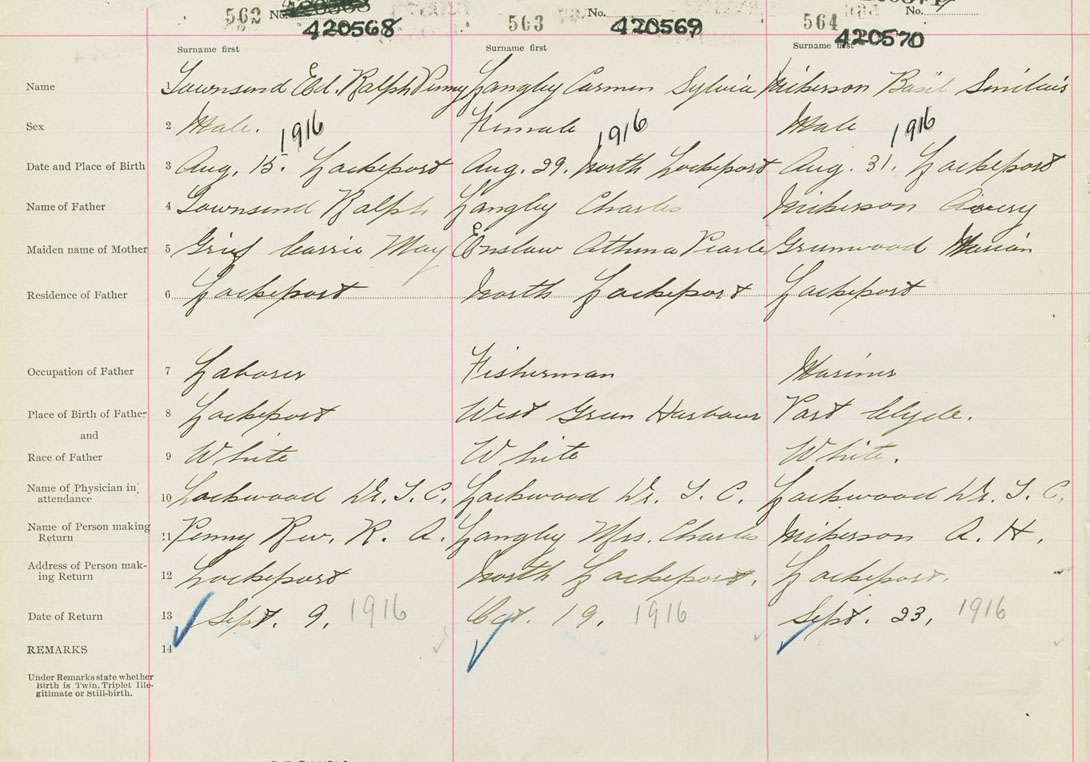 562 No. 420568 563 No. 420569 564 No. 420570
Surname first Surname first Surname first
Name 1 Townsend Ed. Ralph Penny Langley Carmen Sylvia Nickerson Basil Sinclair
Sex 2 Male. Female Male
1916 1916 1916
Date and Place of Birth 3 Aug. 15. Lockeport Aug. 29. North Lockeport Aug. 31. Lockeport
Name of Father 4 Townsend Ralph Langley Charles Nickerson Avery
Maiden name of Mother 5 Carrie May Enslow Pearle Greenwood Marian
Residence of Father 6 Lockeport North Lockeport Lockeport
Occupation of Father 7 Laborer Fisherman Mariner
Place of Birth of Father 8 Lockeport West Green Harbour Port Clyde.
and
Race of Father 9 White White White.
Name of Physician in attendance 10 Lockwood Dr. T. C. Lockwood Dr. T. C. Lockwood Dr. T. C.
Name of Person making Return 11 Penny Rev. R. A. Langley Mrs. Charles Nickerson A. H.
Address of Person mak-
ing Return 12 Lockeport North Lockeport. Lockeport.
Date of Return 13 Sept. 9. 1916 Oct. 19. 1916 Sept. 23, 1916
REMARKS 14
Under Remarks state whether
Birth is Twin, Triplet Ille-
gitimate or Still-birth.